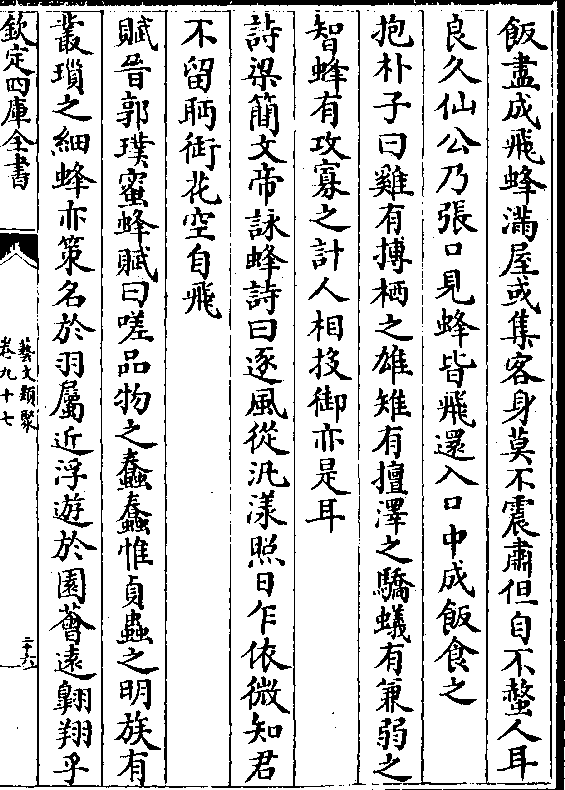 飯盡成飛蜂滿屋或集客身莫不震肅但自不螫人耳
良久仙公乃張口見蜂皆飛還入口中成飯食之
抱朴子曰雞有搏栖之雄雉有擅澤之驕蟻有兼弱之
智蜂有攻寡之計人相投御亦是耳
詩梁簡文帝詠蜂詩曰逐風從汎漾照日乍依微知君
不留眄衘花空自飛
賦晉郭璞蜜蜂賦曰嗟品物之蠢蠢惟貞蟲之明族有
叢瑣之細蜂亦策名於羽屬近浮遊於園薈遠翺翔乎
欽定四庫全書
藝文類聚
卷九十七
二十六